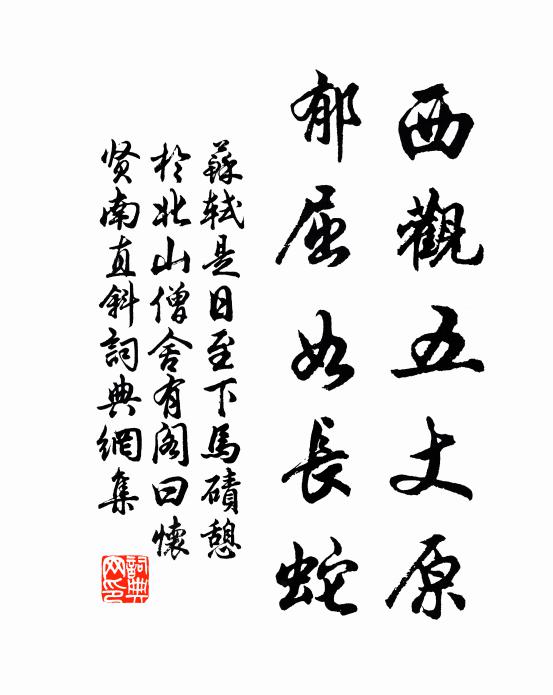 西觀五丈原
郁屈如長蛇
蘇軾是日至下馬磧憩
於北山僧舍有阁曰懷
贤南直斜詞典網集
詞典
网印